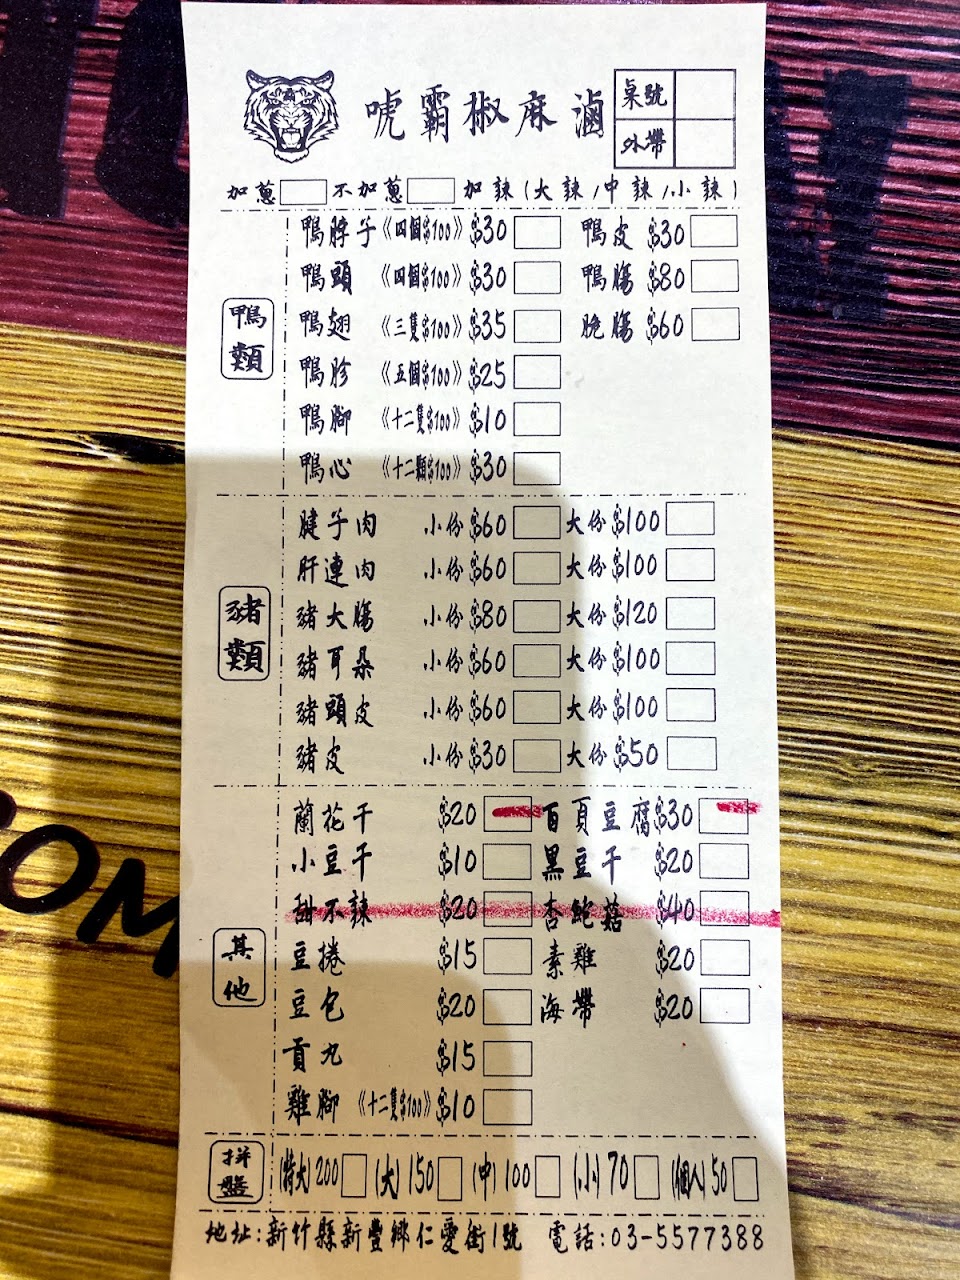 唬霸椒麻滷
桌號
外帶
加蔥 不加蔥 加辣(大辣/中辣/小辣)
鴨類
鴨脖子《四個$100》$30 鴨皮 $30
鴨頭《四個$100》$30 鴨腸 $80
鴨翅《三隻$100》$35 脆腸 $60
鴨胗《五個$100》$25
鴨腳《十二隻$100》$10
鴨心《十二顆$100》$30
豬類
腱子肉 小份$60 大份$100
肝連肉 小份$60 大份$100
豬大腸 小份$80 大份$120
豬耳朵 小份$60 大份$100
豬頭皮 小份$60 大份$100
豬皮 小份$30 大份$50
其他
蘭花干 $20 百頁豆腐$30
小豆干 $10 黑豆干 $20
甜不辣 $20 杏鮑菇 $40
豆捲 $15 素雞 $20
豆包 $20 海帶 $20
貢丸 $15
雞腳《十二隻$100》$10
拼盤
(特大)200 (大)150 (中)100 (小)70 (個人)50
地址:新竹縣新豐鄉仁愛街1號 電話:03-5577388